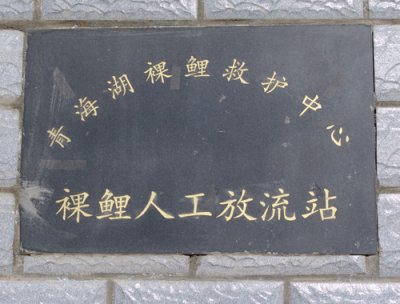 青海湖裸鲤救护中心
裸鲤人工放流站